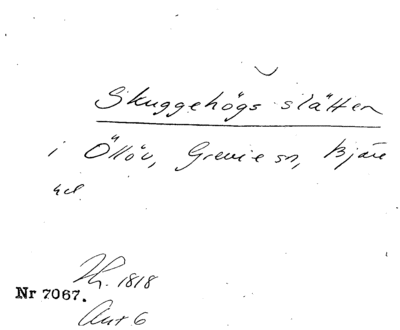 Skuggehögs slätten
i Öllöv, Grevie sn, Bjäre
hd.
Th. 1818
Nr 7067.
Aut 6